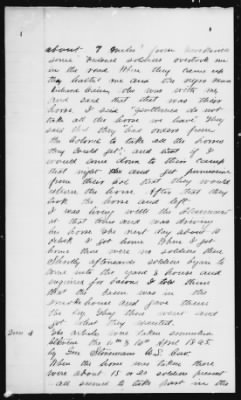 about 7 miles from
some Federal soldiers overtook me
in the road When they came up
they halted me and the negro man
who was with me
and said that that was their
horse I said "gentlemen do not
take all the horses we have" They
said that they had orders from
the Colonel to take all the horses
they could get, and that if I
would come down to their camp
that night and get permission
from their Col that they would
return the horse. After that they
took the horse and left
I was living with the
at that time and was driving
his horse The next day about 12
oclock I got home When I got
home there were no soldiers there
Shortly afterwards soldiers began to
come into the yard & house and
enquired for bacon I told them
that the bacon was in the
smokehouse and gave them
the key They then went and
got what they wanted.
Item 4
The articles were taken sometime
between the 11th & 16th April 1865
by Gen Stoneman U.S. Army
When the horse was taken there
were about 15 or 20 soldiers present
all seemed to take part in the